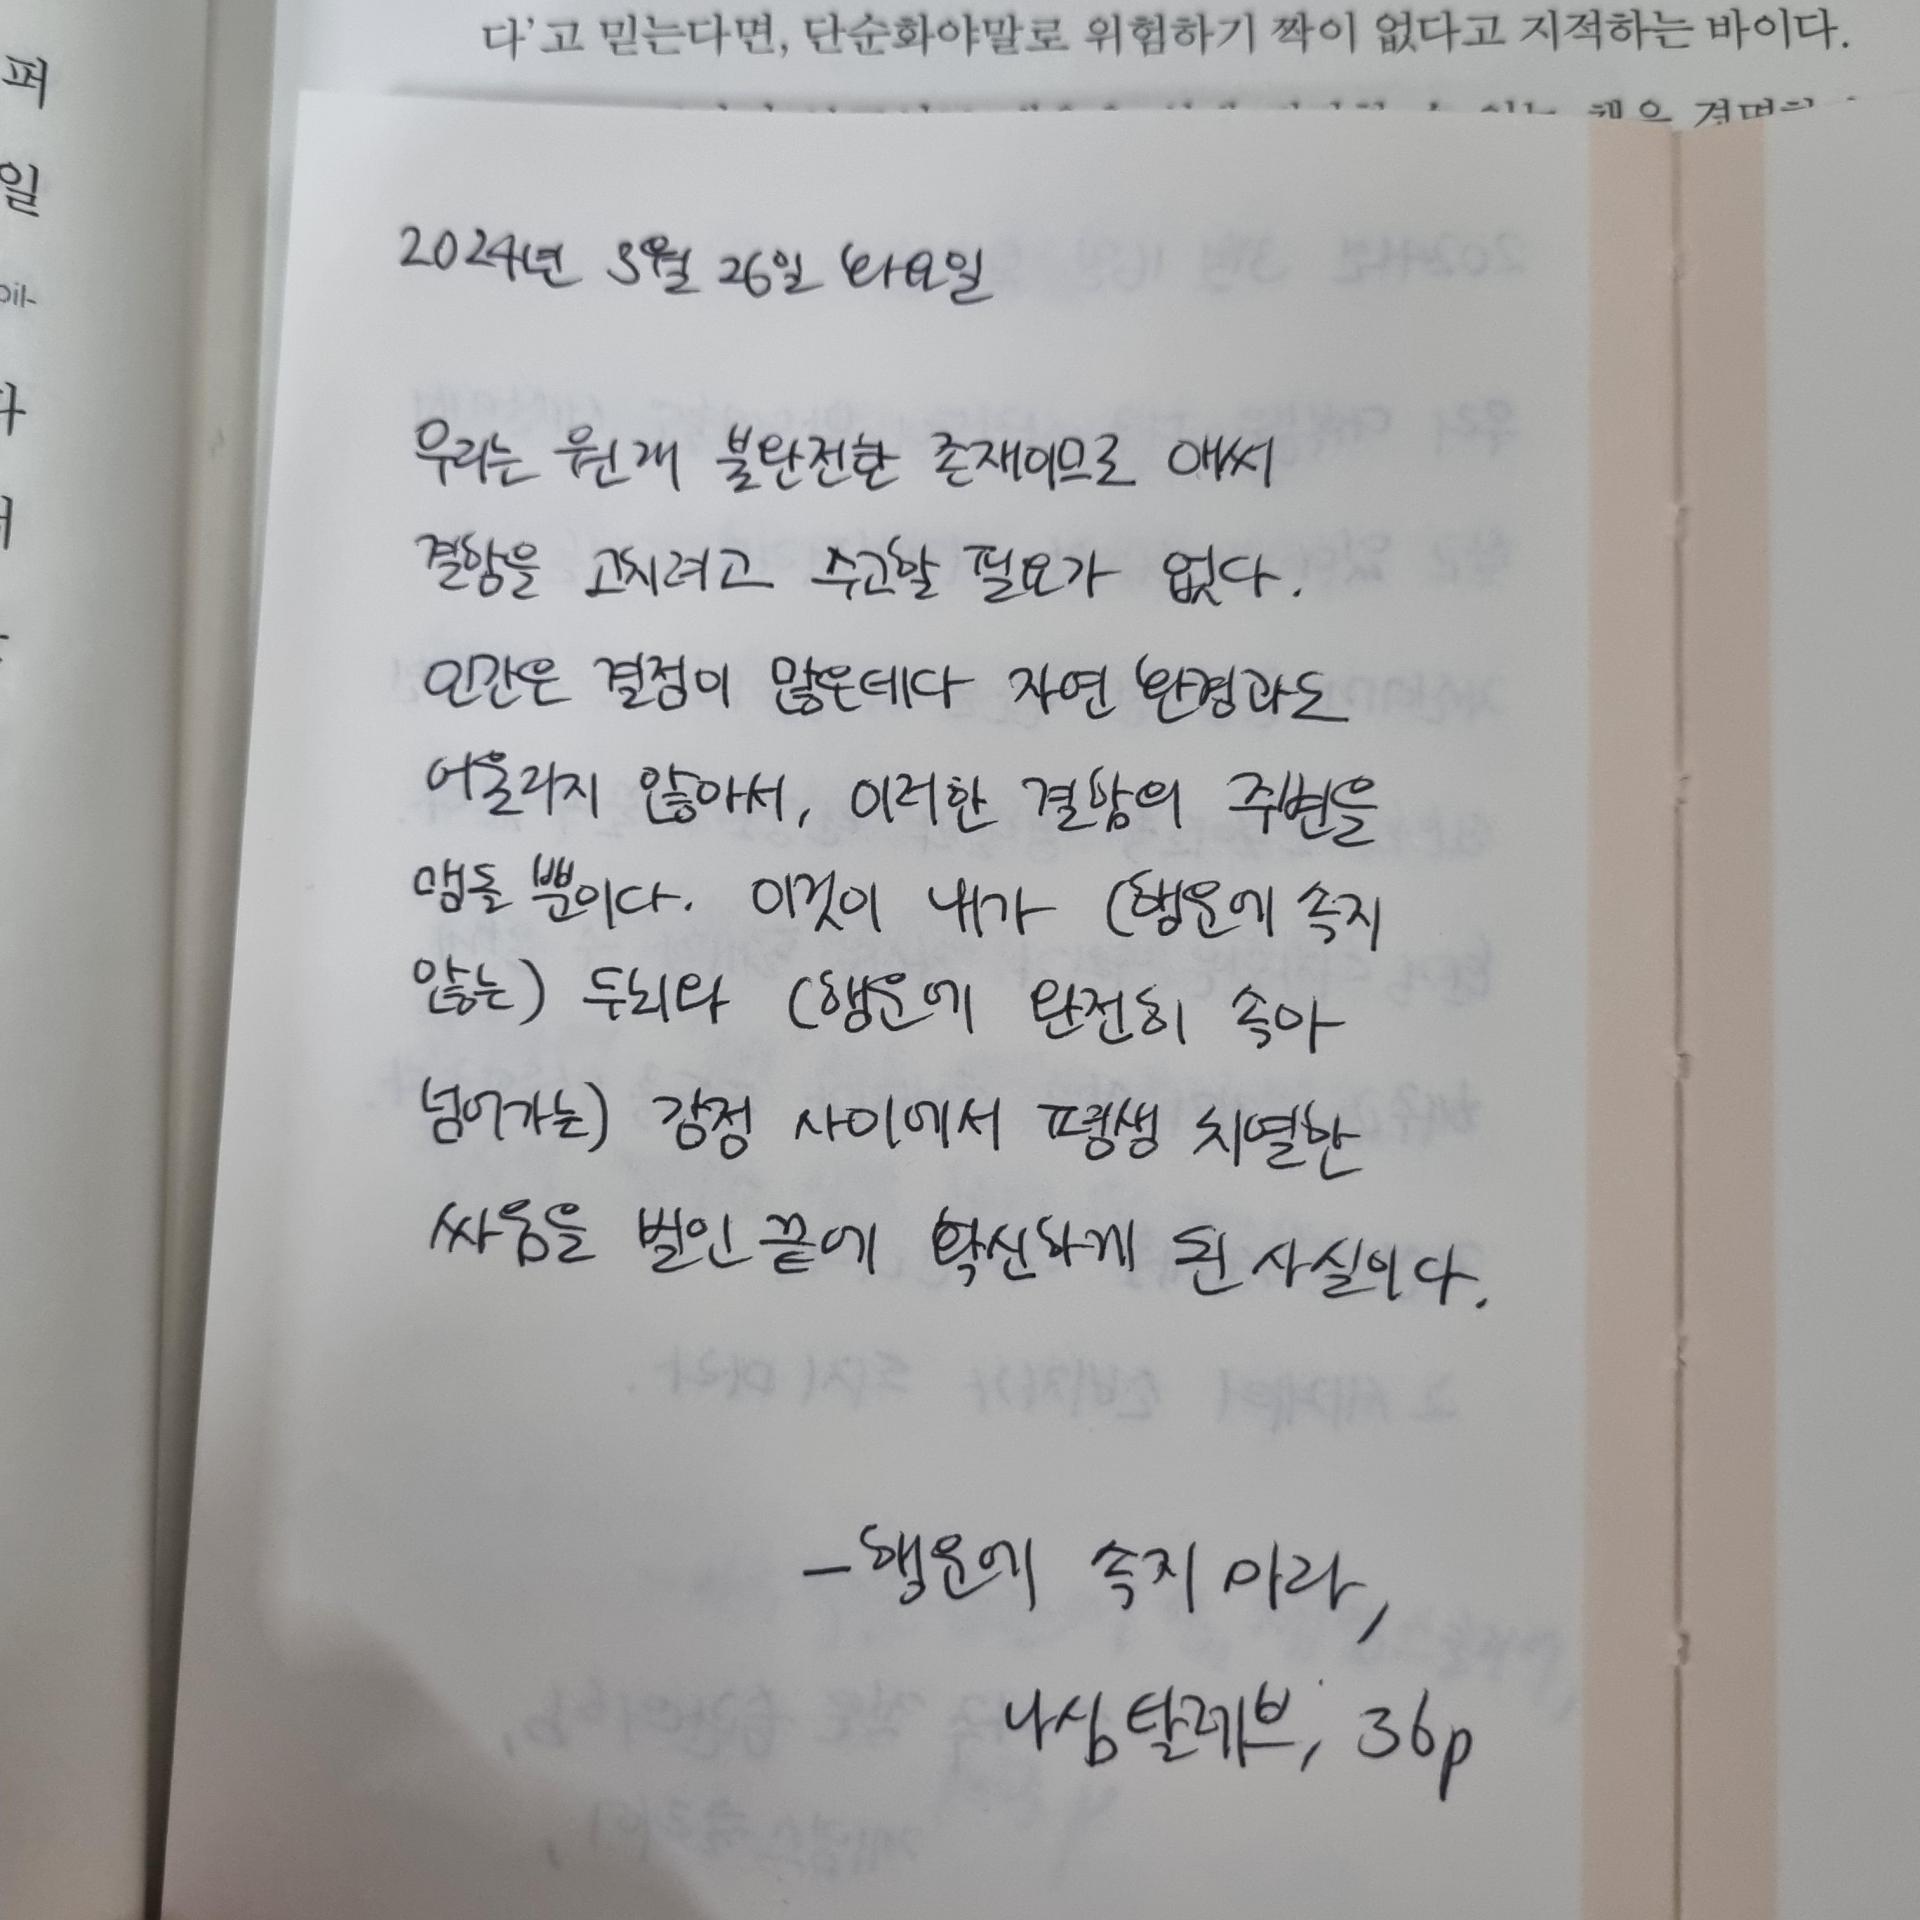 다'고 믿는다면, 단순화야말로 위험하기 짝이 없다고 지적하는 바이다.
퍼
일
2024년 3월 26일 화요일
우리는 원래 불완전한 존재이므로 애써
결함을 고치려고 수고할 필요가 없다.
인간은 결점이 많은데다 자연 환경과도
어울리지 않아서, 이러한 결함의 주변을
맴돌 뿐이다. 이것이 내가 (행운에 속지
않는) 두뇌와 (행운에 완전히 속아
넘어가는) 감정 사이에서 평생 치열한
싸움을 벌인 끝에 확신하게 된 사실이다.
- 행운에 속지 마라,
나심 탈레브, 36p